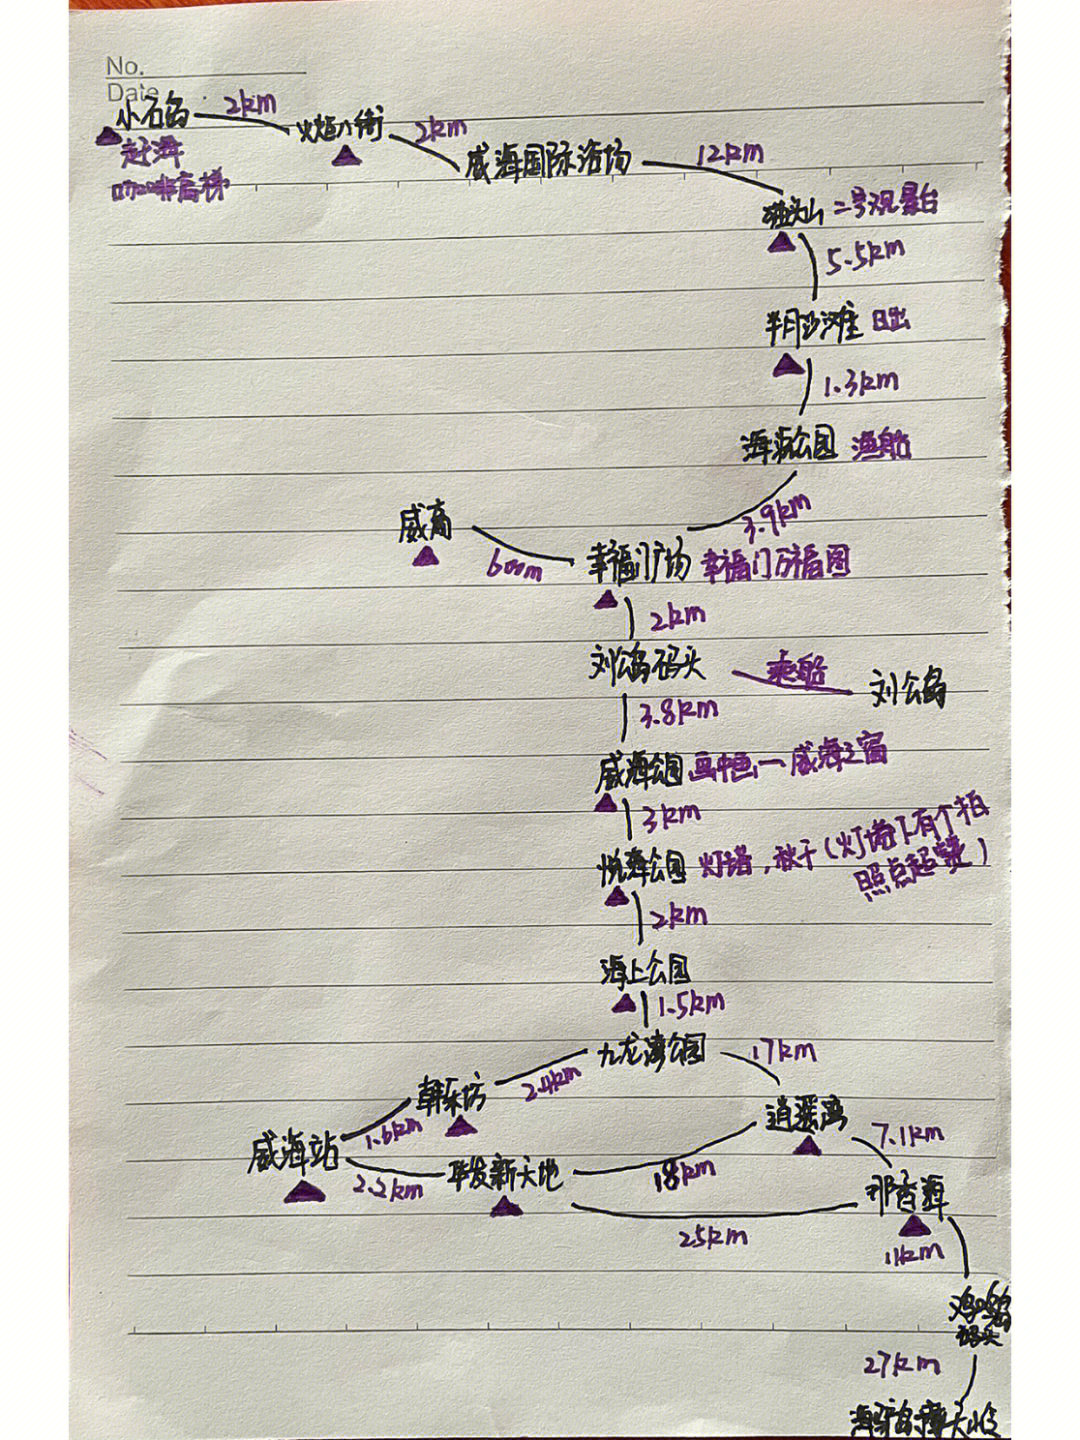 No.
Date
小石岛 2km 火炬八街 2km 威海国际浴场 12km
赶海
咖啡肩梯
猫头山 二号观景台
5.5km
半月沙滩 日出
1.3km
海源公园 渔船
3.9km
威高 600m 幸福门广场 幸福门万福图
2km
刘公岛码头 乘船 刘公岛
3.8km
威海公园 画中画—威海之窗
3km
悦海公园 灯塔,秋千(灯塔下有个拍
照点超赞)
2km
海上公园
1.5km
九龙湾公园 17km
2.4km
韩乐坊 逍遥湾
1.6km 7.1km
威海站 2.2km 华发新天地 18km 那香海
25km 11km
鸡鸣岛
码头
27km
海驴岛